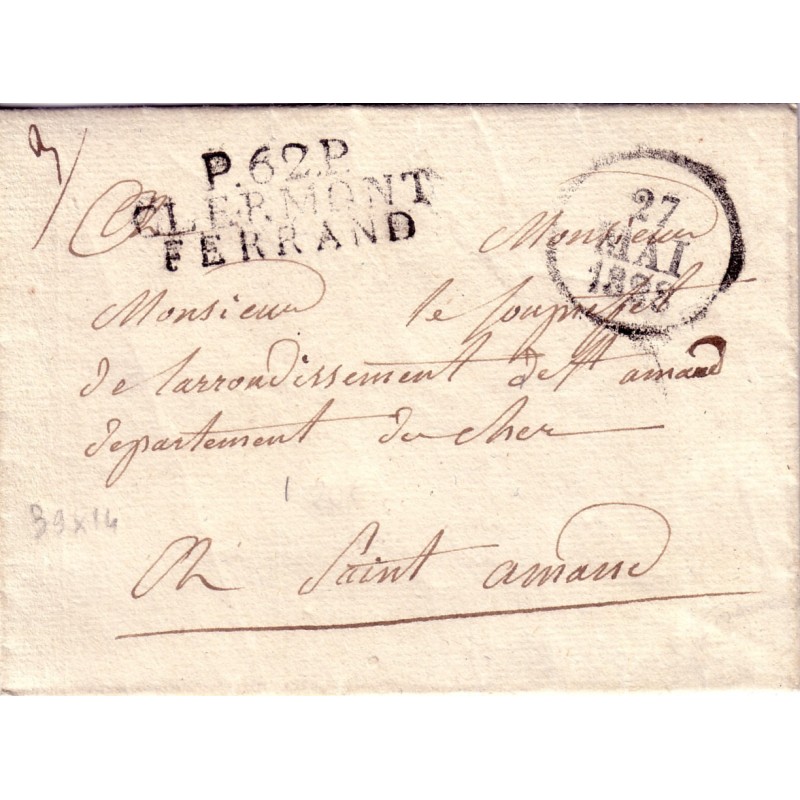 P.62.P
CLERMONT
FERRAND
27
MAI
1828
A Monsieur
Monsieur le souprefet
de larrondissement de St amand
departement du cher
39x14
A Saint amand